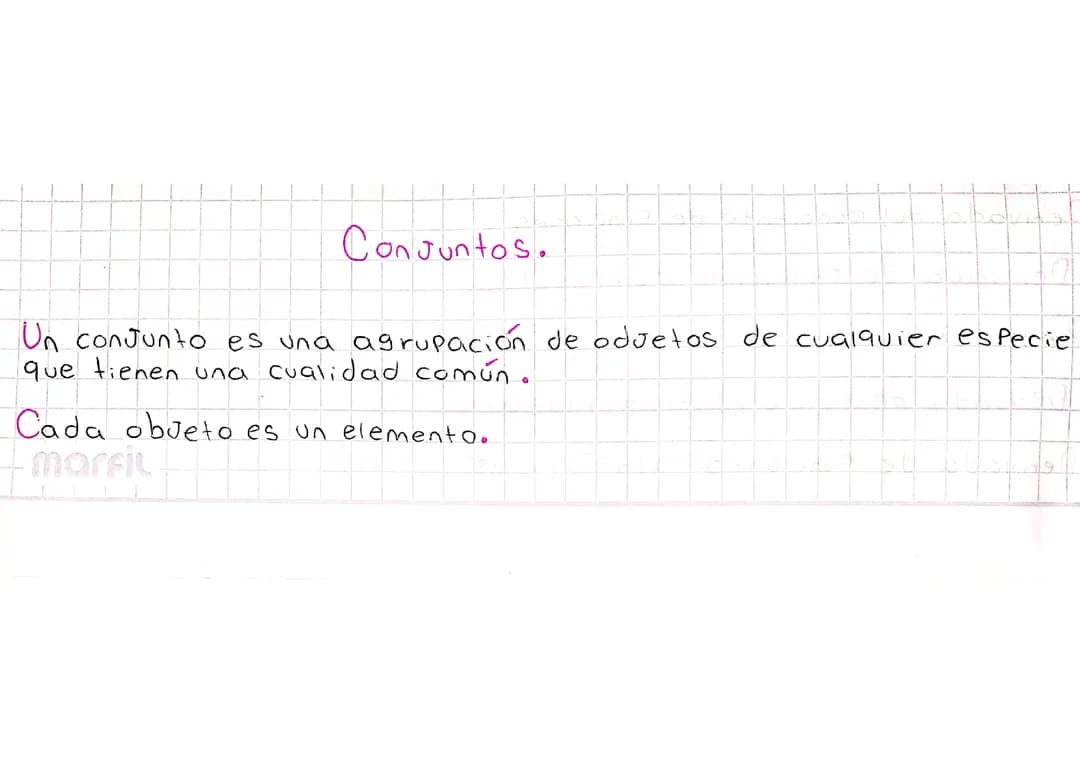 Conjuntos.
Un conjunto es una agrupación de odjetos de cualquier especie
que tienen una cualidad común.
Cada objeto es un elemento.
marfil